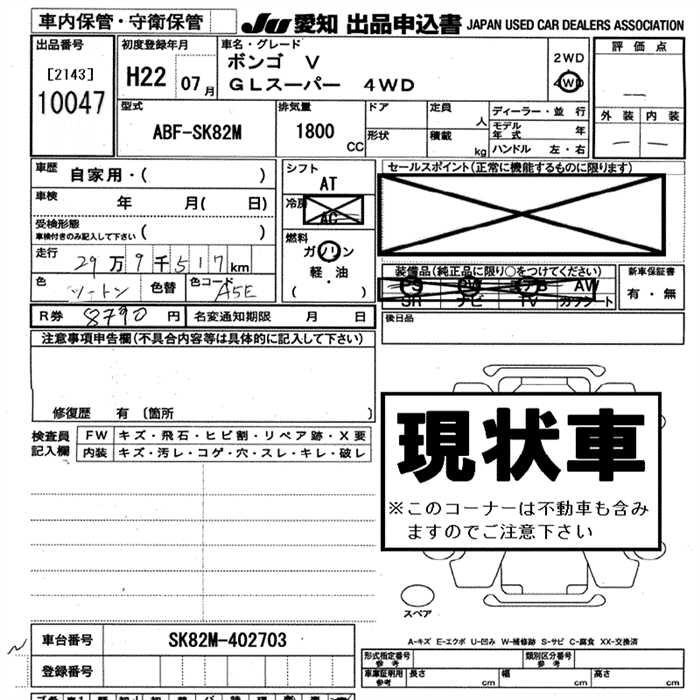 車内保管・守衛保管
JU 愛知 出品申込書 JAPAN USED CAR DEALERS ASSOCIATION
出品番号
[2143]
10047
初度登録年月
H22 07月
車名・グレード
ボンゴ V
GLスーパー 4WD
2WD
4WD
評価点
—
外装 内装
— —
型式
ABF-SK82M
排気量
1800
CC
ドア
形状
定員
人
積載
kg
ディーラー・並行
モデル年式 年
ハンドル 左・右
車歴
自家用・( )
車検
年 月( 日)
受検形態
車検付きのみ記入して下さい ( )
走行
29万9千517km
色
ツートン
色替
色コード
A5E
R券 8790円 名変通知期限 月 日
シフト
AT
冷房
AC
燃料
ガソリン
軽・油
( )
セールスポイント(正常に機能するものに限ります)
装備品(純正品に限り○をつけてください)
PS PW エアB AW
SR ナビ TV カワシート
新車保証書
有・無
後日品
注意事項申告欄(不具合内容等は具体的に記入して下さい)
修復歴 有〔箇所 〕
検査員
記入欄
FW キズ・飛石・ヒビ割・リペア跡・X要
内装 キズ・汚レ・コゲ・穴・スレ・キレ・破レ
現状車
※このコーナーは不動車も含み
ますのでご注意下さい
スペア
A-キズ E-エクボ U-凹み W-補修跡 S-サビ C-腐食 XX-交換済
車台番号 SK82M-402703
登録番号
形式指定番号
参考
類別区分番号
参考
車庫証明用
参考
長さ cm 幅 cm 高さ cm